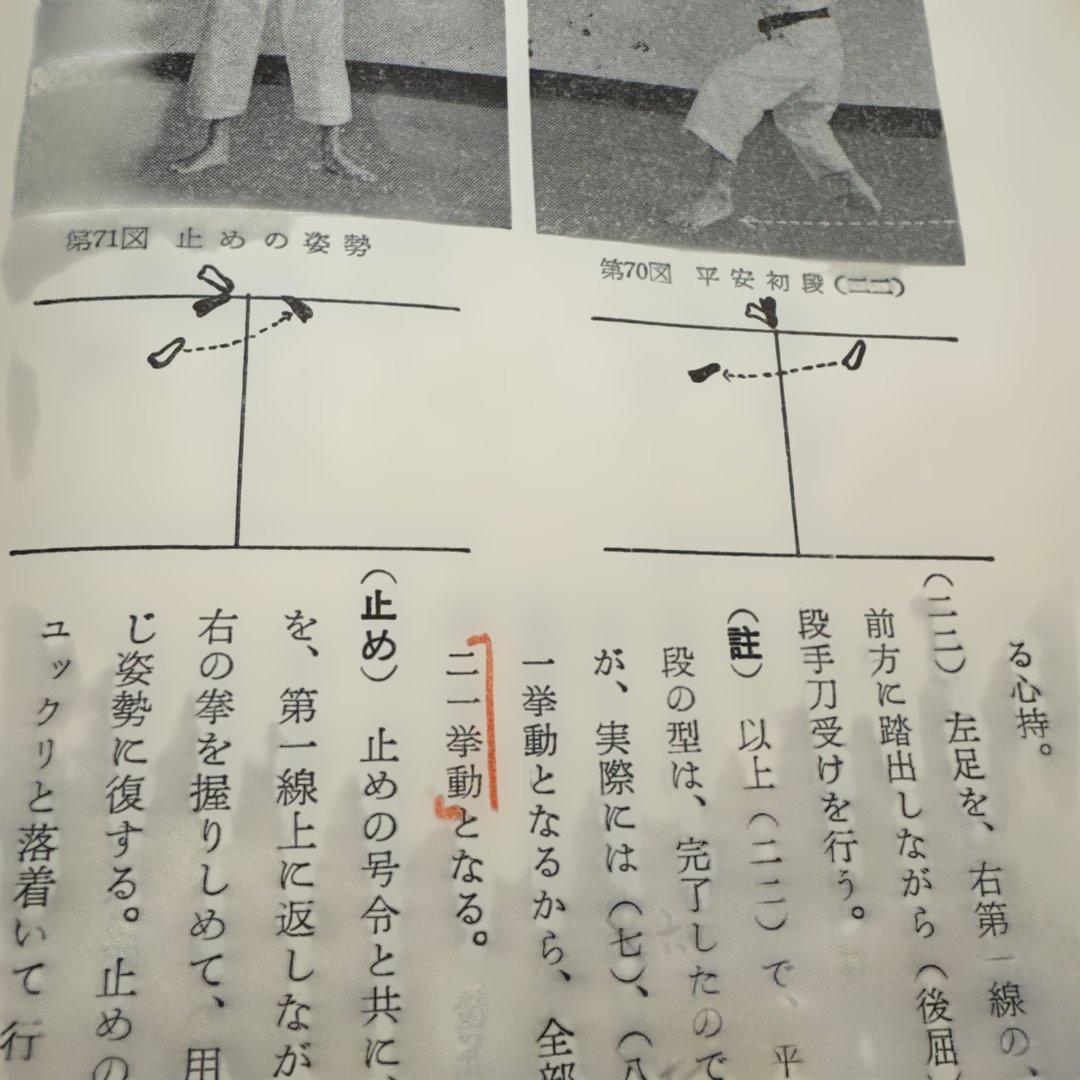 第70図 平安初段(二二)
第71図 止めの姿勢
る心持。
(二二) 左足を、右第一線の、
前方に踏出しながら(後屈)
段手刀受けを行う。
(註) 以上(二二)で、平
段の型は、完了したので
が、実際には(七)、(八
一挙動となるから、全部
二一挙動となる。
(止め) 止めの号令と共に、
を、第一線上に返しなが
右の拳を握りしめて、用
じ姿勢に復する。止めの
ュックリと落着いて行